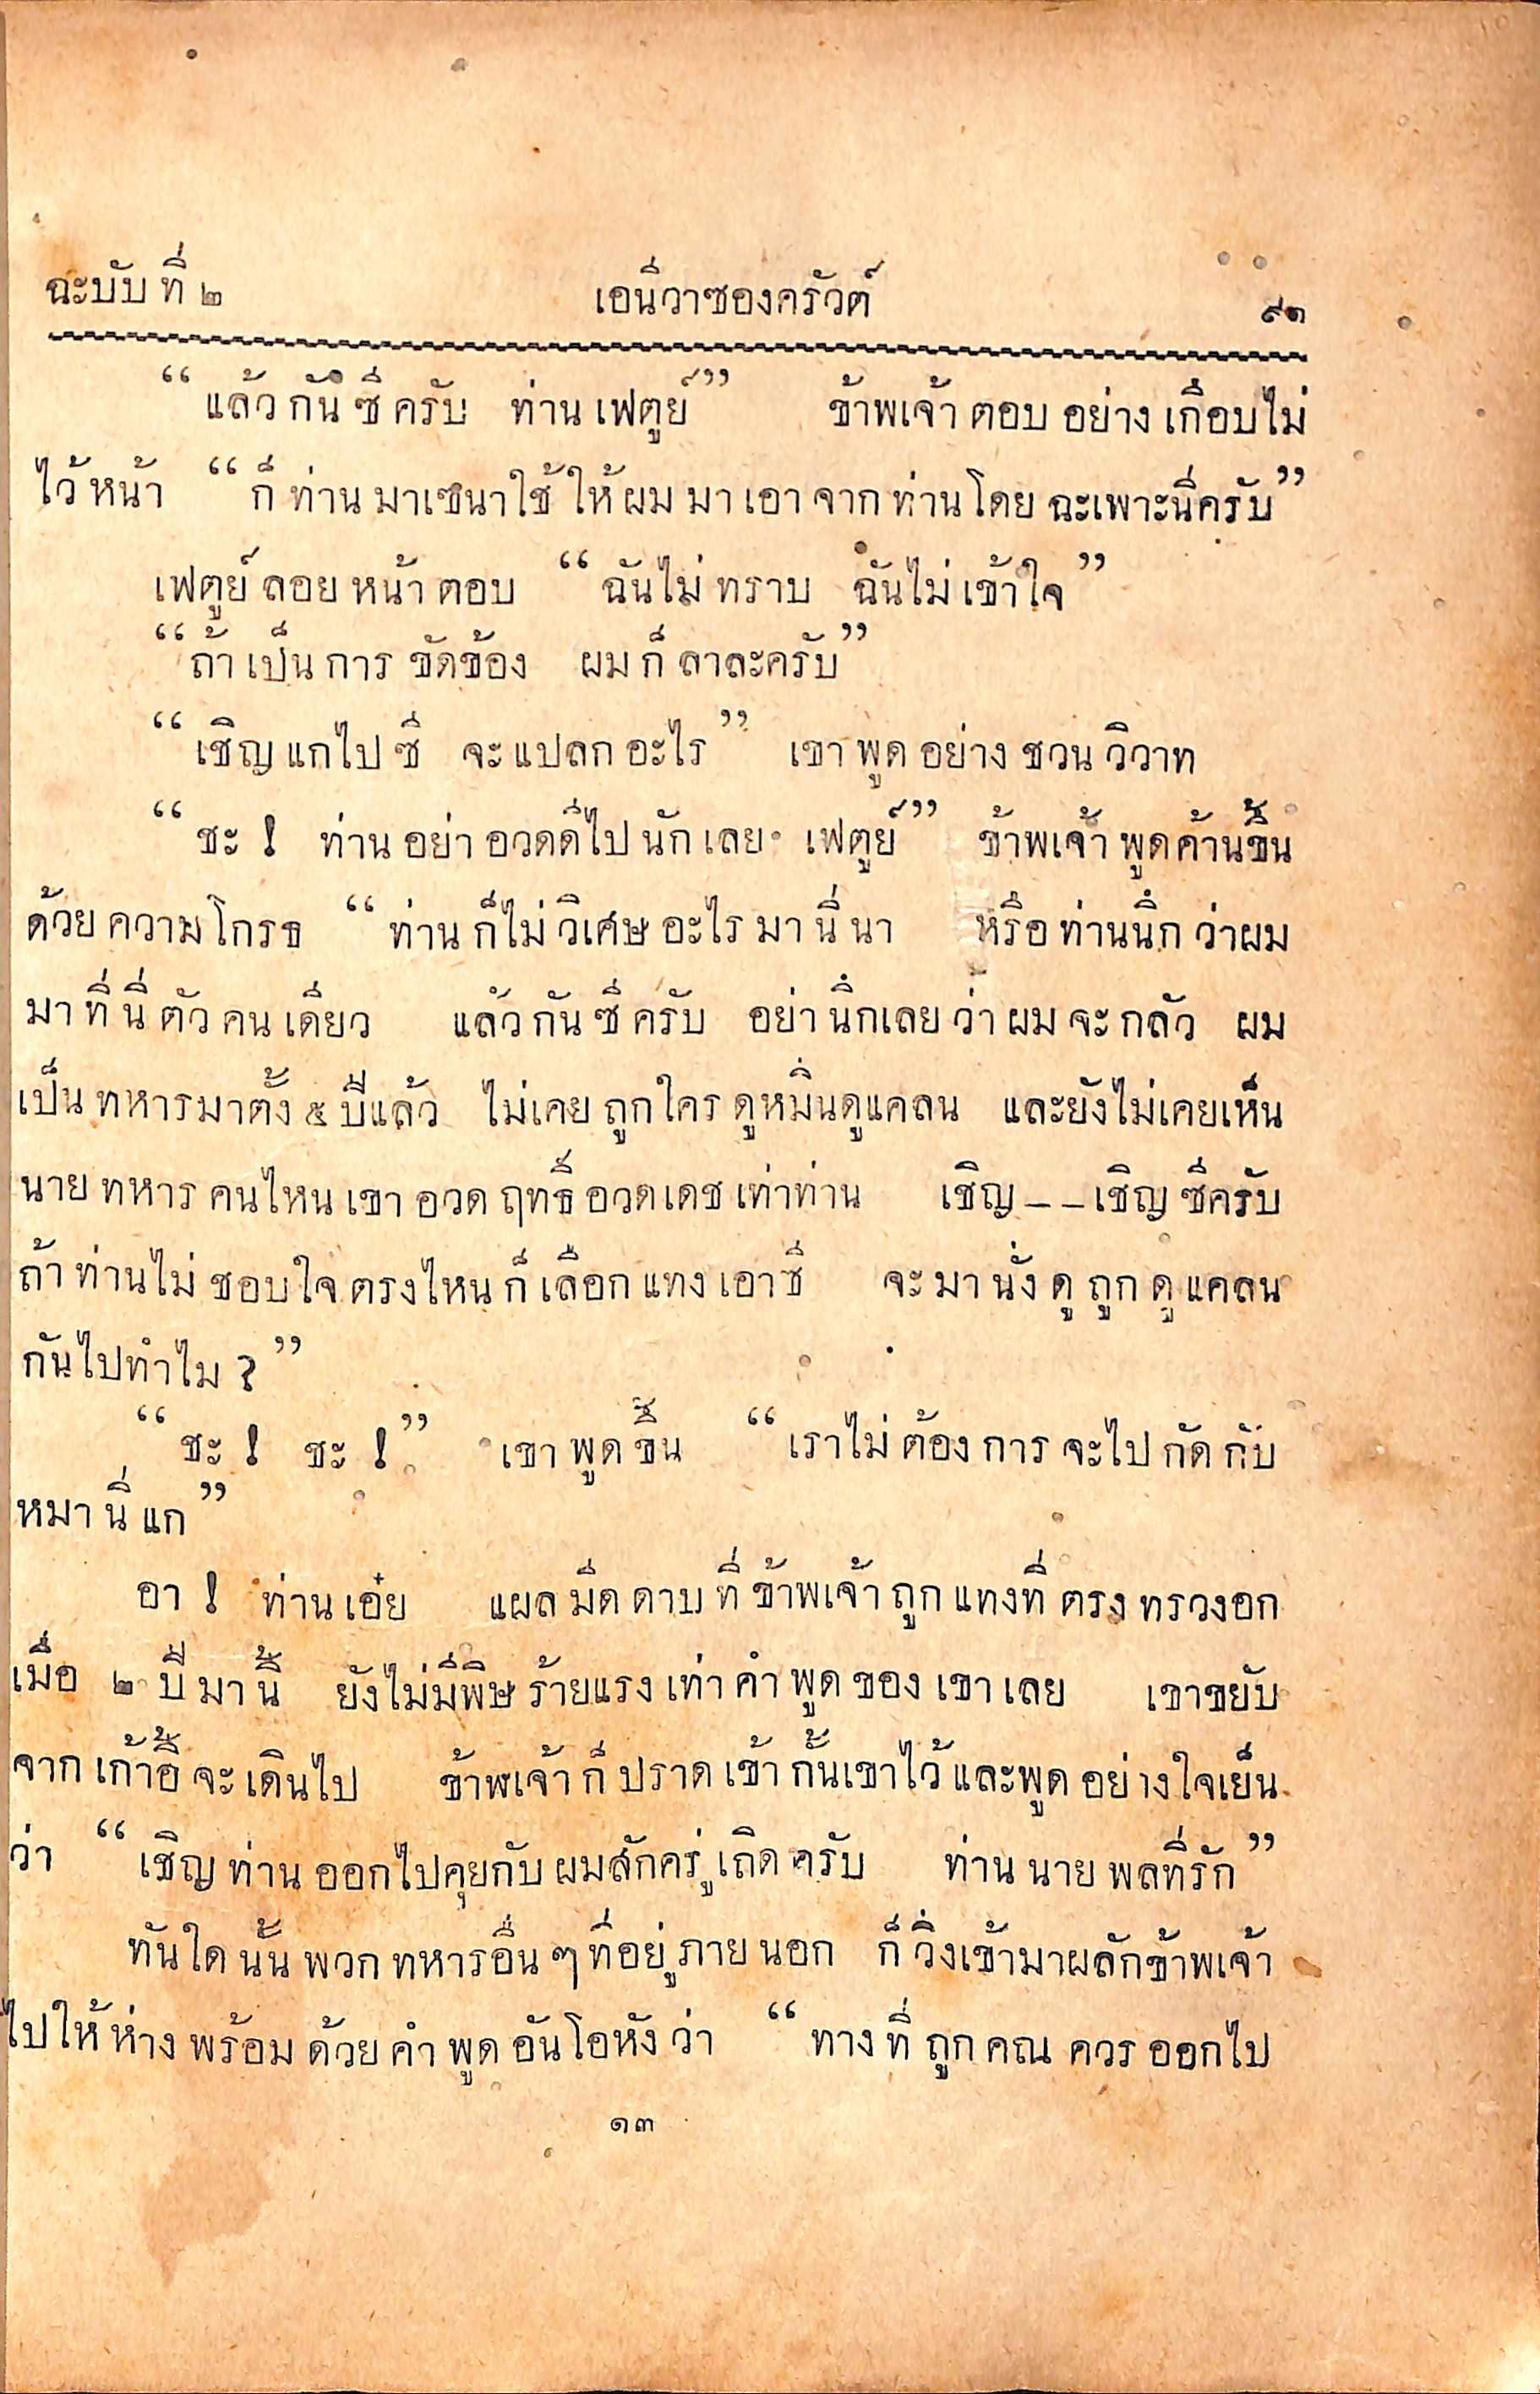 ฉะบับ ที่ ๒ เอนีวาซองครัวต์ ๙๓
“ แล้ว กัน ซี ครับ ท่าน เฟตูย์ ” ข้าพเจ้า ตอบ อย่าง เกือบไม่
ไว้ หน้า “ ก็ ท่าน มาเซนาใช้ ให้ ผม มา เอา จาก ท่าน โดย ฉะเพาะนี่ครับ ”
เฟตูย์ ลอย หน้า ตอบ “ ฉันไม่ ทราบ ฉันไม่ เข้าใจ ”
“ ถ้า เป็น การ ขัดข้อง ผม ก็ ลาละครับ ”
“ เชิญ แกไป ซี จะ แปลก อะไร ” เขา พูด อย่าง ชวน วิวาท
“ ชะ ! ท่าน อย่า อวดดีไป นัก เลย เฟตูย์ ” ข้าพเจ้า พูดค้านขึ้น
ด้วย ความ โกรธ “ ท่าน ก็ไม่ วิเศษ อะไร มา นี่ นา หรือ ท่านนึก ว่าผม
มา ที่ นี่ ตัว คน เดียว แล้ว กัน ซี ครับ อย่า นึกเลย ว่า ผม จะ กลัว ผม
เป็น ทหารมาตั้ง ๕ ปีแล้ว ไม่เคย ถูกใคร ดูหมิ่นดูแคลน และยังไม่เคยเห็น
นาย ทหาร คนไหน เขา อวด ฤทธิ์ อวดเดช เท่าท่าน เชิญ – – เชิญ ซีครับ
ถ้า ท่านไม่ ชอบใจ ตรงไหน ก็ เลือก แทง เอาซี จะ มา นั่ง ดู ถูก ดู แคลน
กันไปทำไม ? ”
“ ชะ ! ชะ ! ” เขา พูด ขึ้น “ เราไม่ ต้อง การ จะไป กัด กับ
หมา นี่ แก ”
อา ! ท่าน เอ๋ย แผล มีด ดาบ ที่ ข้าพเจ้า ถูก แทงที่ ตรง ทรวงอก
เมื่อ ๒ ปี มา นี้ ยังไม่มีพิษ ร้ายแรง เท่า คำ พูด ของ เขา เลย เขาขยับ
จาก เก้าอี้ จะ เดินไป ข้าพเจ้า ก็ ปราด เข้า กั้นเขาไว้ และพูด อย่างใจเย็น
ว่า “ เชิญ ท่าน ออกไปคุยกับ ผมสักครู่ เถิด ครับ ท่าน นาย พลที่รัก ”
ทันใด นั้น พวก ทหารอื่น ๆ ที่อยู่ ภาย นอก ก็ วิ่งเข้ามาผลักข้าพเจ้า
ไปให้ ห่าง พร้อม ด้วย คำ พูด อันโอหัง ว่า “ ทาง ที่ ถูก คุณ ควร ออกไป
๑๓